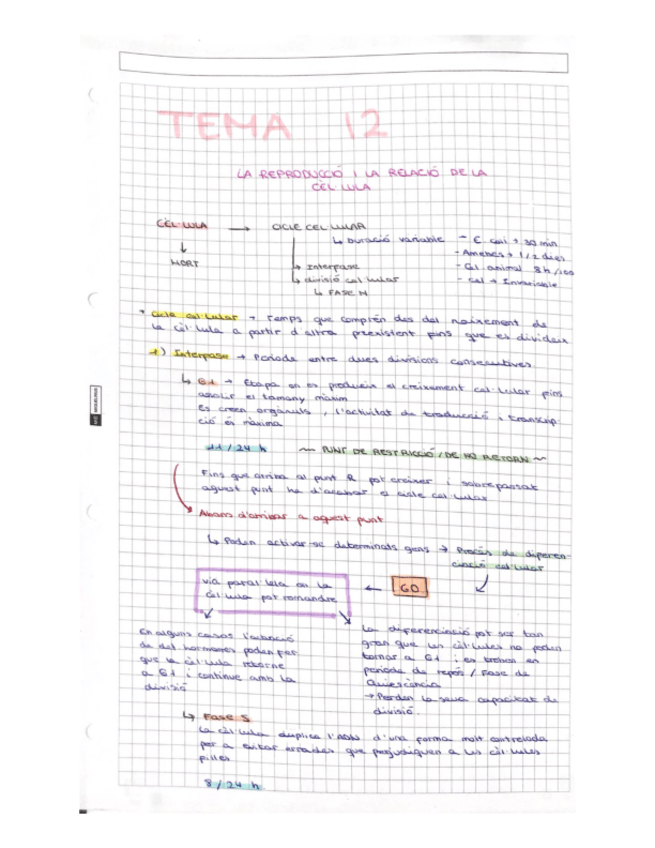 TEMA 12
LA REPRODUCCIÓ I LA RELACIÓ DE LA
CÈL·LULA
CÈL·LULA → CICLE CEL·LULAR
↳ Duració variable - E. coli → 30 min
- Amebes → 1/2 dies
MORT
↳ Interfase - Cèl animal 8h/100
↳ divisió cel·lular - cel → Invariable
↳ FASE M
* Cicle cel·lular → Temps que comprén des del naixement de
la cèl·lula a partir d'altra preexistent fins que es divideix
1) Interfase → Període entre dues divisions consecutives.
↳ G1 → Etapa on es produeix el creixement cel·lular fins
assolir el tamany màxim
Es creen orgànuls, l'activitat de traducció i transcrip-
ció és màxima
11/24 h ~ PUNT DE RESTRICCIÓ / DE NO RETORN ~
Fins que arriba al punt R pot créixer i sobrepassat
aquest punt ha d'acabar el cicle cel·lular
Abans d'arribar a aquest punt
↳ Poden activar-se determinats gens → Procés de diferen-
ciació cel·lular
via paral·lela en la
cèl·lula pot romandre
← G0
En alguns casos l'acció
de hormones poden fer
que la cèl·lula retorne
a G1 i continue amb la
divisió
La diferenciació pot ser tan
gran que les cèl·lules no poden
tornar a G1 i es troben en
període de repós / Fase de
Quiescència
→ Perden la seua capacitat de
divisió.
↳ Fase S
La cèl·lula duplica l'ADN d'una forma molt controlada
per a evitar errades que perjudiquen a les cèl·lules
filles
8/24 h